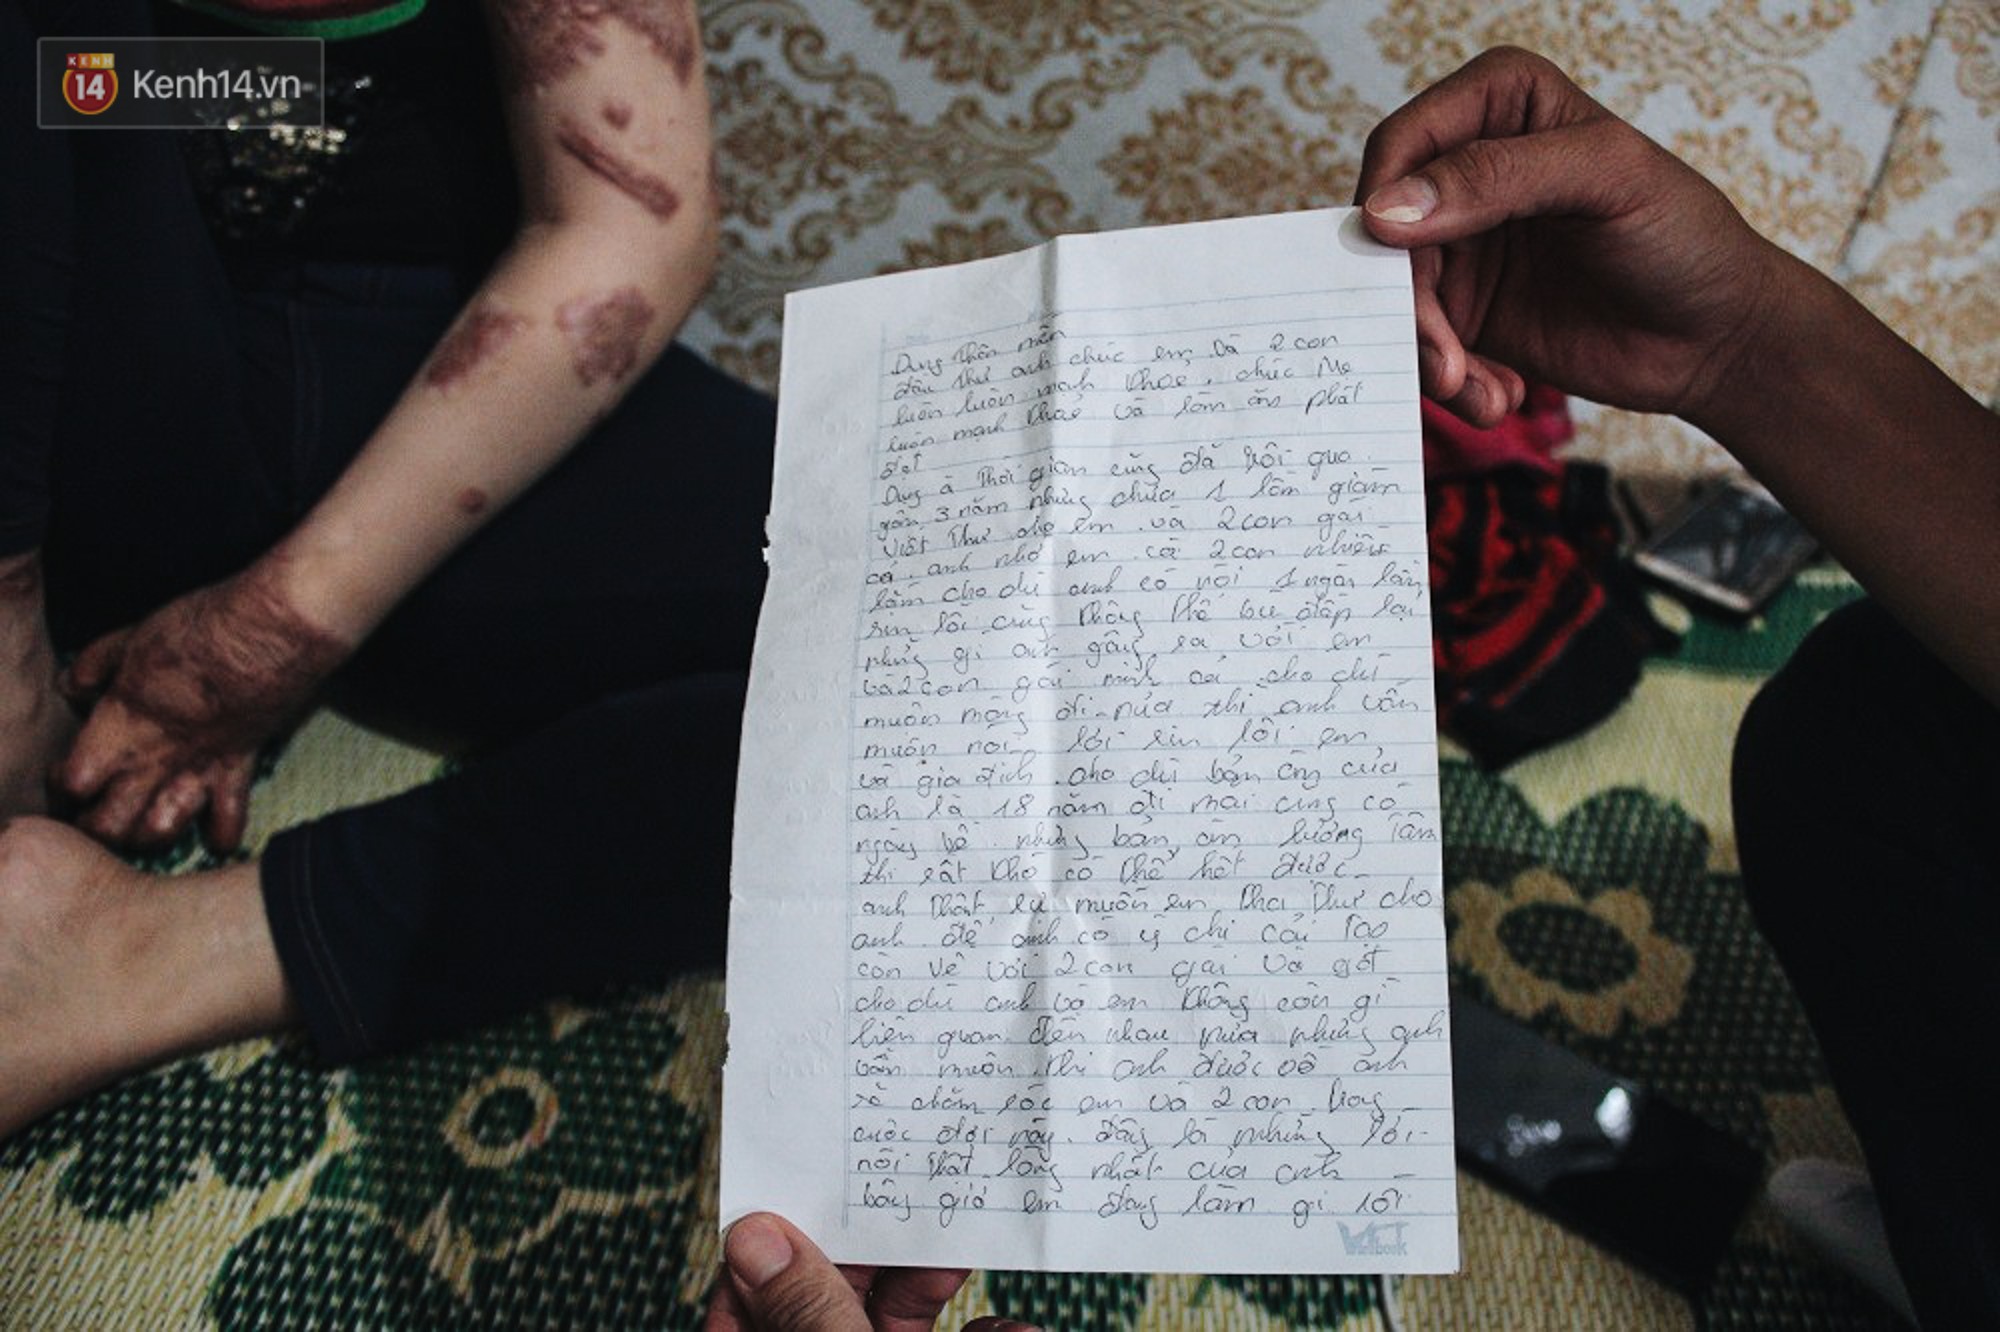 KENH
14
Kenh14.vn
Dung thân mến
đầu thư anh chúc em và 2 con
luôn luôn mạnh khoẻ. chúc Mẹ
luôn mạnh khoẻ và làm ăn phát
đạt
Dung à thời gian cũng đã trôi qua
gần 3 năm nhưng chưa 1 lần giám
viết thư cho em và 2 con gái
cả. anh nhớ em và 2 con nhiều
lắm cho dù anh có nói 1 ngàn lần
xin lỗi cũng không thể bù đắp lại
những gì anh gây ra với em
và 2 con gái mình cả cho dù
muộn màng đi nữa thì anh vẫn
muốn nói lời xin lỗi em
và gia đình. cho dù bản án của
anh là 18 năm đi mai cũng có
ngày về nhưng bản án lương tâm
thì rất khó có thể hết được
anh thật sự muốn em tha thư cho
anh để anh có ý chí cải tạo
còn về với 2 con gái
cho dù anh và em không còn gì
liên quan đến nhau nữa nhưng anh
vẫn muốn khi anh được về anh
sẽ chăm sóc em và 2 con trong
cuộc đời này. đây là những lời
nói thật lòng nhất của anh
bây giờ em đang làm gì rồi